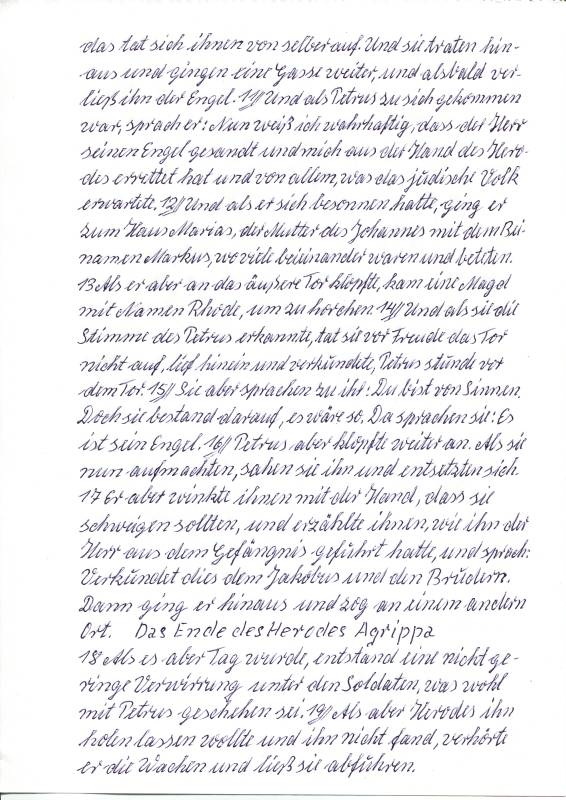 das tat sich ihnen von selber auf. Und sie traten hin-
aus und gingen eine Gasse weiter, und alsbald ver-
ließ ihn der Engel. 11// Und als Petrus zu sich gekommen
war, sprach er: Nun weiß ich wahrhaftig, dass der Herr
seinen Engel gesandt und mich aus der Hand des Hero-
des errettet hat und von allem, was das jüdische Volk
erwartete. 12// Und als er sich besonnen hatte, ging er
zum Haus Marias, der Mutter des Johannes mit dem Bei-
namen Markus, wo viele beieinander waren und beteten.
13 Als er aber an das äußere Tor klopfte, kam eine Magd
mit Namen Rhode, um zu horchen. 14// Und als sie die
Stimme des Petrus erkannte, tat sie vor Freude das Tor
nicht auf, lief hinein und verkündete, Petrus stünde vor
dem Tor. 15// Sie aber sprachen zu ihr: Du bist von Sinnen.
Doch sie bestand darauf, es wäre so. Da sprachen sie: Es
ist sein Engel. 16// Petrus aber klopfte weiter an. Als sie
nun aufmachten, sahen sie ihn und entsetzten sich.
17 Er aber winkte ihnen mit der Hand, dass sie
schweigen sollten, und erzählte ihnen, wie ihn der
Herr aus dem Gefängnis geführt hatte, und sprach:
Verkündet dies dem Jakobus und den Brüdern.
Dann ging er hinaus und zog an einem andern
Ort. Das Ende des Herodes Agrippa
18 Als es aber Tag wurde, entstand eine nicht ge-
ringe Verwirrung unter den Soldaten, was wohl
mit Petrus geschehen sei. 19// Als aber Herodes ihn
holen lassen wollte und ihn nicht fand, verhörte
er die Wachen und ließ sie abführen.